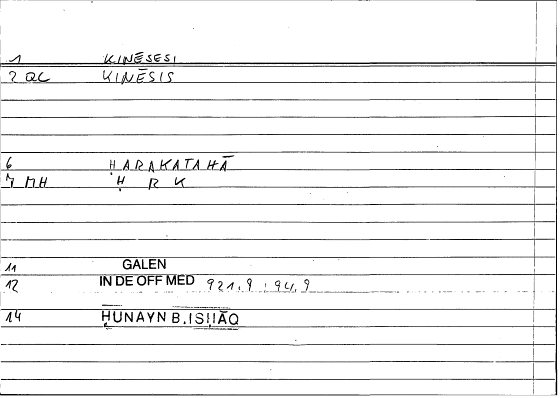 1 KINĒSESI
2 QC KINĒSIS
6 ḤARAKATAHĀ
7 MH Ḥ R K
11 GALEN
12 IN DE OFF MED 921,9 : 94,9
14 ḤUNAYN B. ISḤĀQ